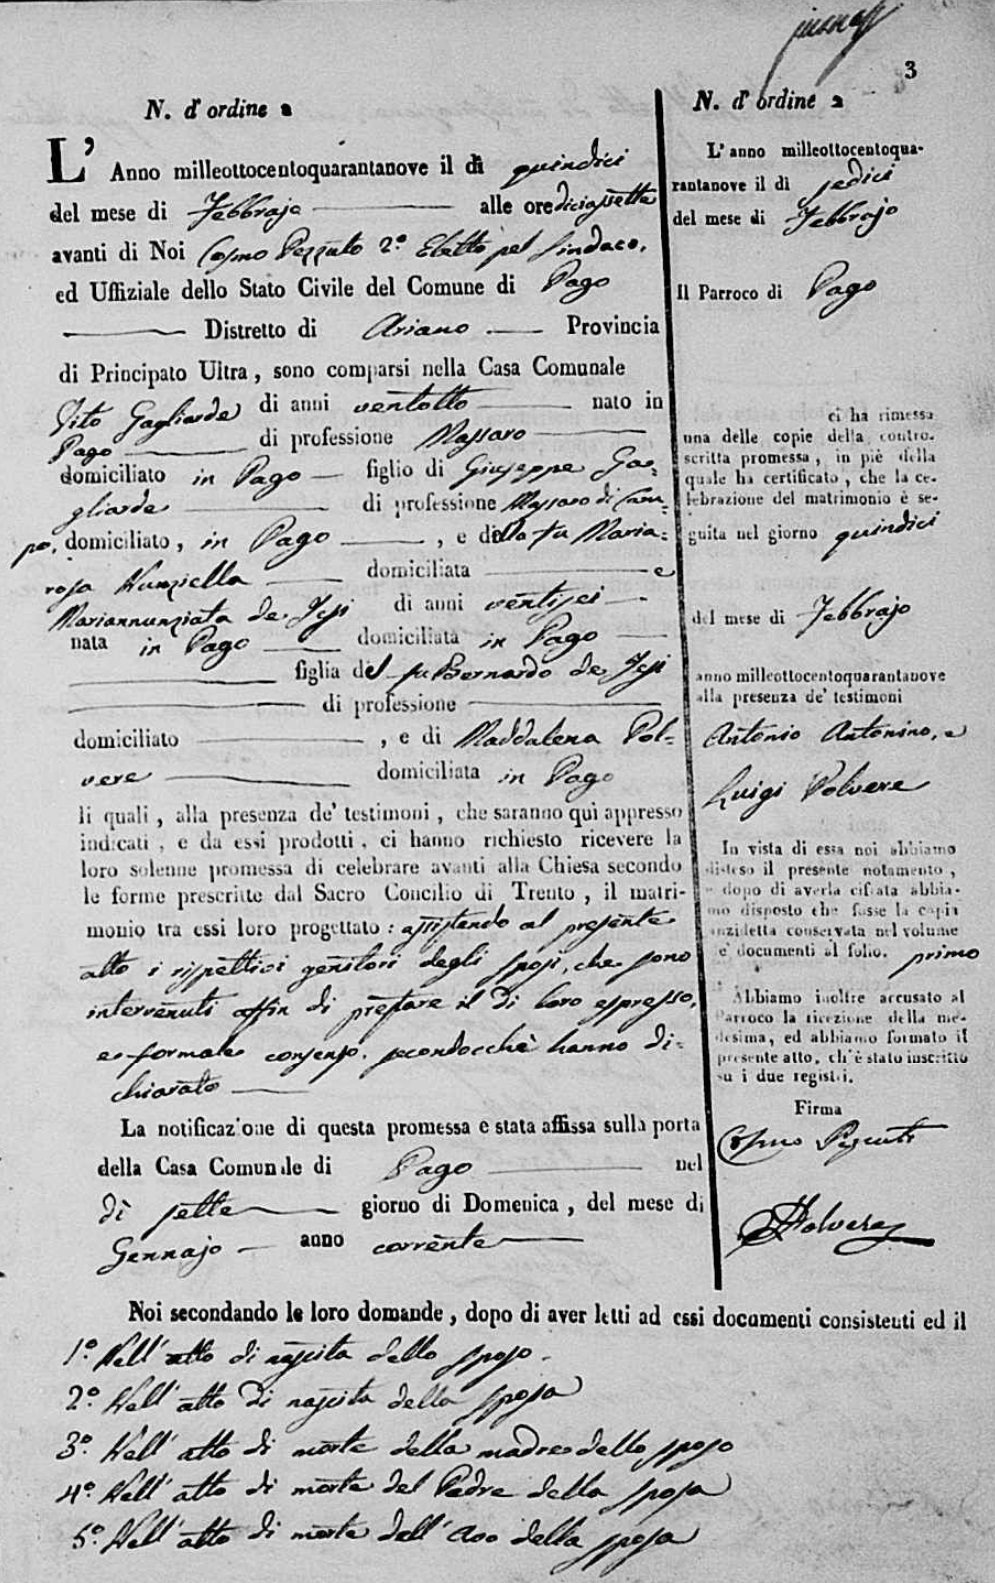 3
N. d' ordine 2
L' Anno milleottocentoquarantanove il dì quindici
del mese di Febbrajo alle ore diciassette
avanti di Noi Cosmo Pezzuto 2º Eletto pel Sindaco,
ed Uffiziale dello Stato Civile del Comune di Pago
Distretto di Ariano Provincia
di Principato Ultra, sono comparsi nella Casa Comunale
Vito Gagliarde di anni ventotto nato in
Pago di professione Massaro
domiciliato in Pago figlio di Giuseppe Ga=
gliarde di professione Massaro di Cam=
po, domiciliato, in Pago, e della fu Maria=
rosa Nunziella domiciliata e
Mariannunziata de Jesi di anni ventisei
nata in Pago domiciliata in Pago
figlia del fu Bernardo de Jesi
di professione
domiciliato, e di Maddalena Pol=
vere domiciliata in Pago
li quali, alla presenza de' testimoni, che saranno quì appresso
indicati, e da essi prodotti, ci hanno richiesto ricevere la
loro solenne promessa di celebrare avanti alla Chiesa secondo
le forme prescritte dal Sacro Concilio di Trento, il matri-
monio tra essi loro progettato: assistendo al presente
atto i rispettivi genitori degli sposi, che sono
intervenuti affin di prestare il di loro espresso,
e formale consenso, secondocchè hanno di=
chiarato
La notificazione di questa promessa e stata affissa sulla porta
della Casa Comunale di Pago nel
dì sette giorno di Domenica, del mese di
Gennajo anno corrente
N. d' ordine 2
L' anno milleottocentoqua-
rantanove il dì sedici
del mese di Febbrajo
Il Parroco di Pago
ci ha rimessa
una delle copie della contro-
scritta promessa, in piè della
quale ha certificato, che la ce-
lebrazione del matrimonio è se-
guita nel giorno quindici
del mese di Febbrajo
anno milleottocentoquarantanove
alla presenza de' testimoni
Antonio Antonino, e
Luigi Polvere
In vista di essa noi abbiamo
disteso il presente notamento,
e dopo di averla cifrata abbia-
mo disposto che fosse la copia
anzidetta conservata nel volume
de' documenti al folio. primo
Abbiamo inoltre accusato al
Parroco la ricezione della me-
desima, ed abbiamo formato il
presente atto, ch'è stato inscritto
su i due registri.
Firma
Cosmo Pezzuti
Polvere
Noi secondando le loro domande, dopo di aver letti ad essi documenti consistenti ed il
1º. Nell' atto di nascita dello sposo.
2º. Nell' atto di nascita della sposa
3º. Nell' atto di morte della madre dello sposo
4º. Nell' atto di morte del Padre della sposa
5º. Nell' atto di morte dell' avo della sposa